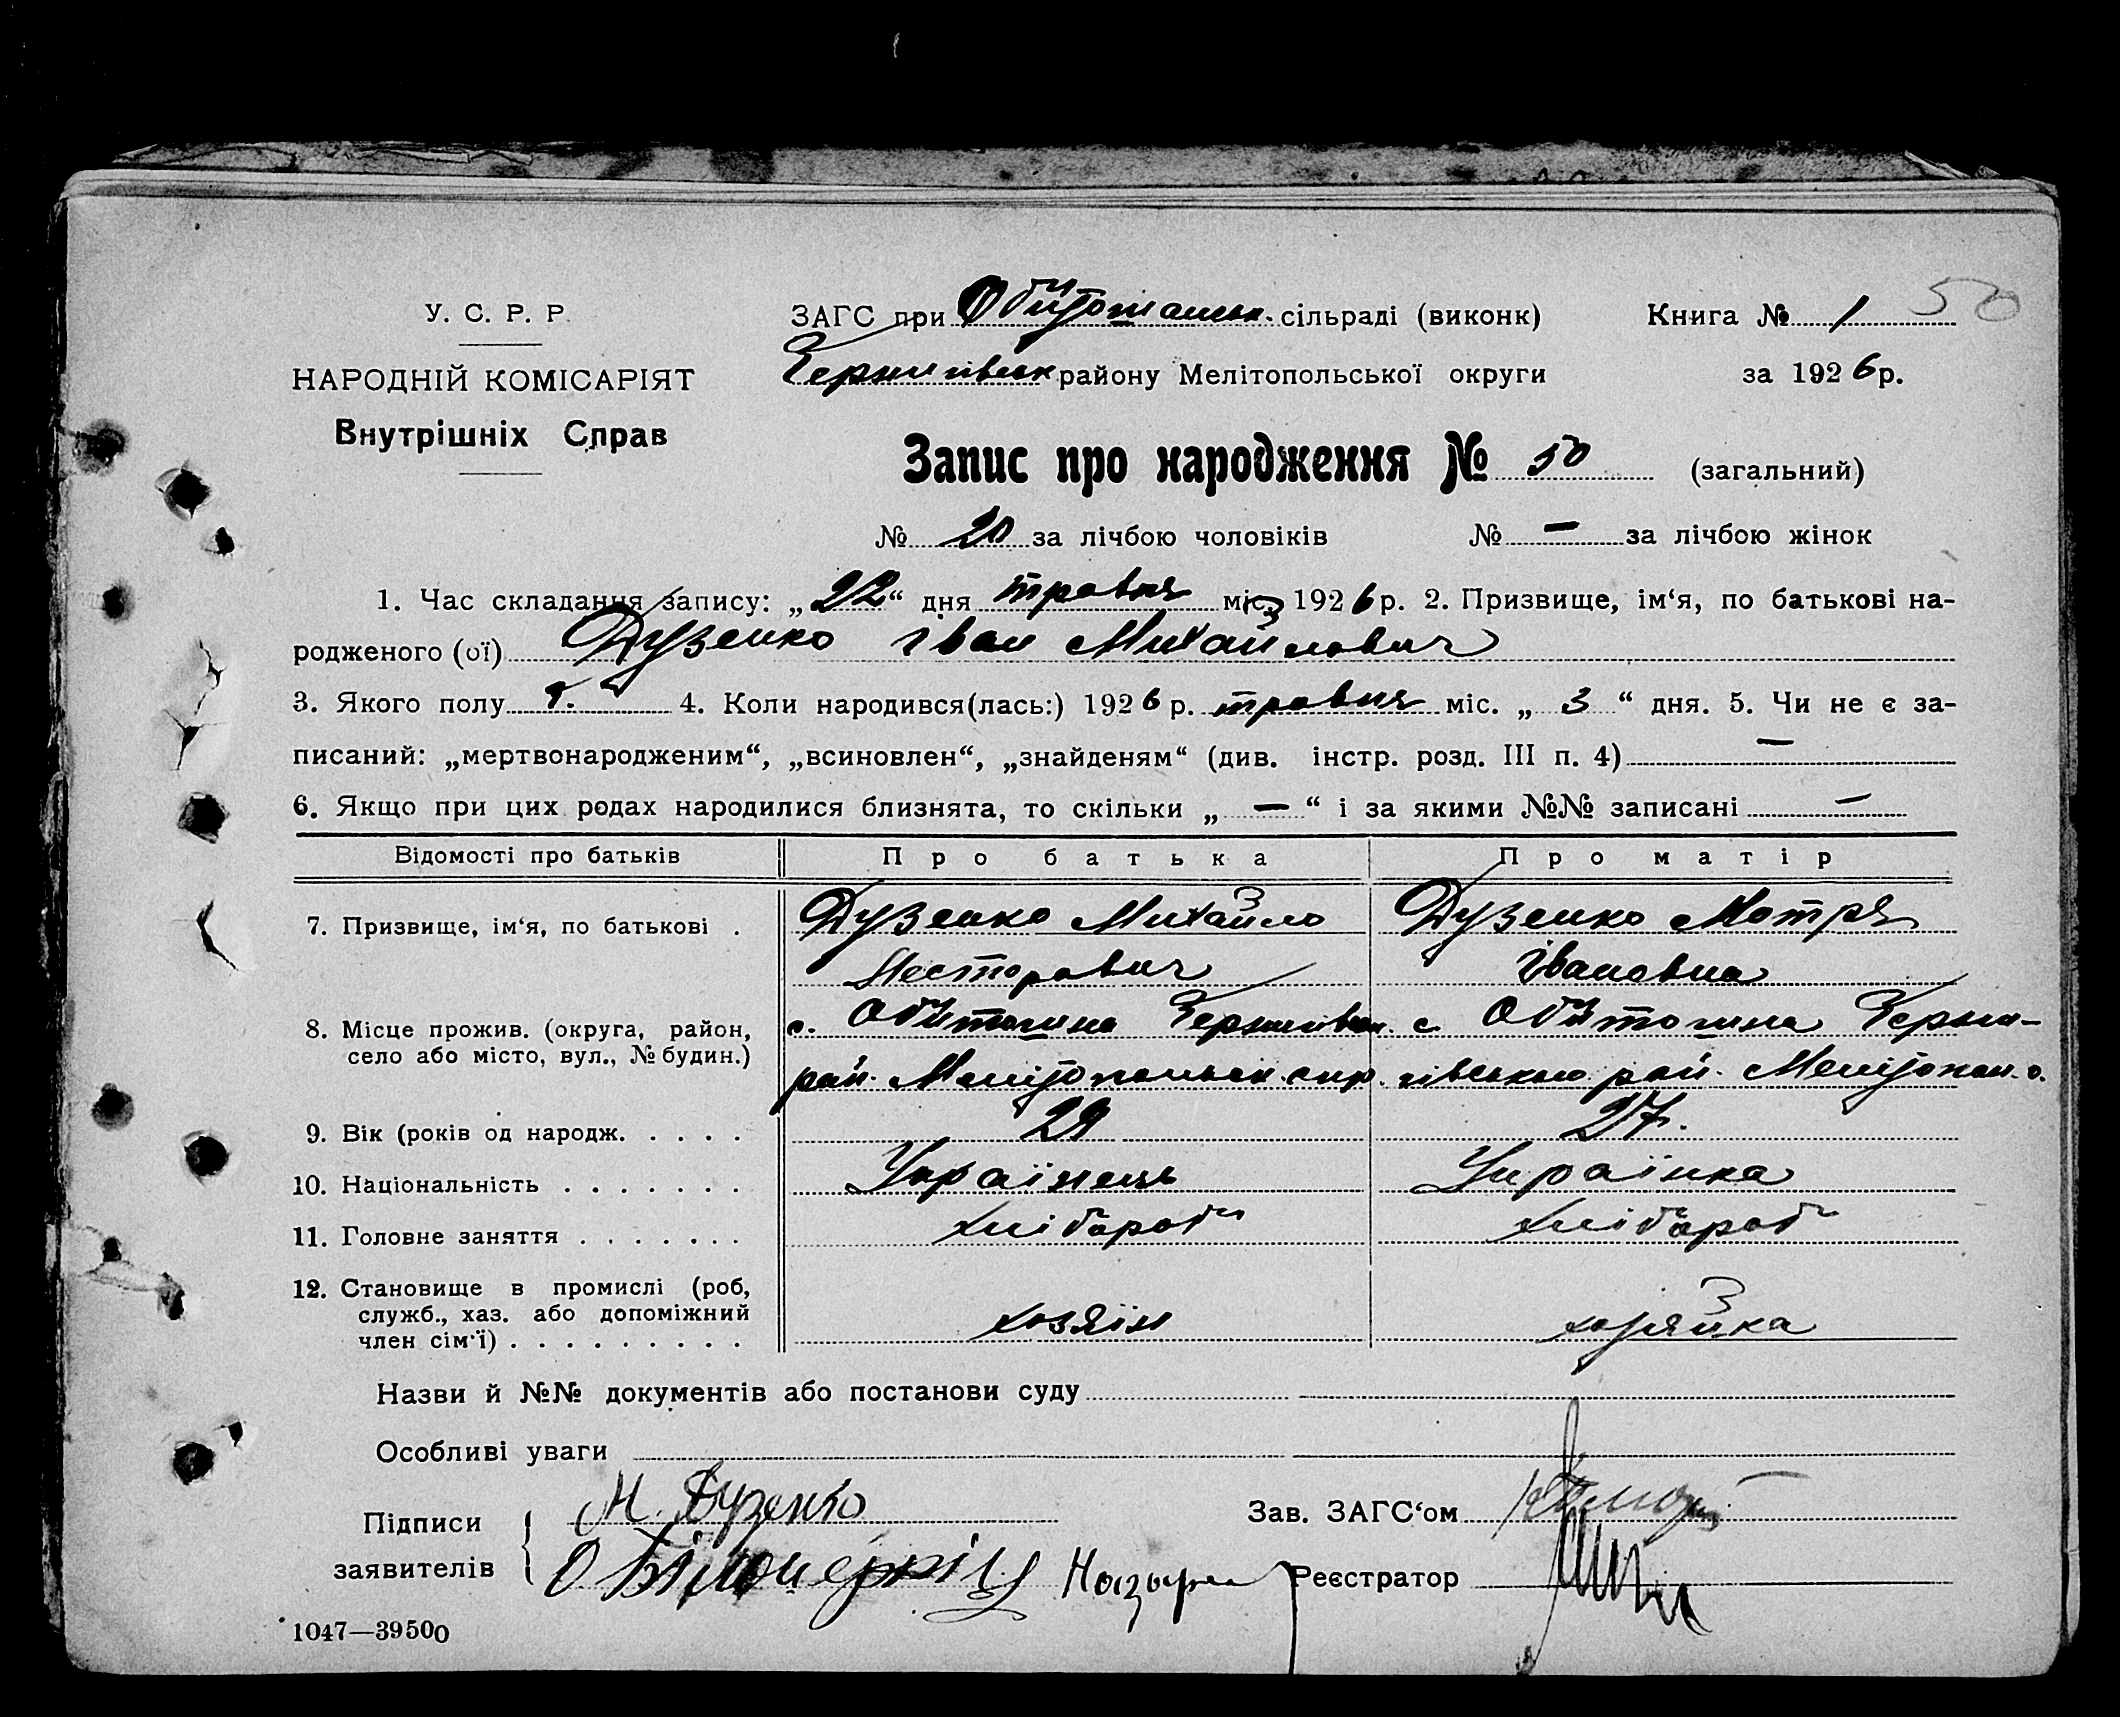 50
У. С. Р. Р.
НАРОДНІЙ КОМІСАРІЯТ
Внутрішніх Справ
ЗАГС при сільраді (виконк)
Чернигівськ району Мелітопольської округи
Книга № 1
за 1926 р.
Запис про народження № 50 (загальний)
№ 20 за лічбою чоловіків № — за лічбою жінок
1. Час складання запису: „22“ дня травня міс. 1926 р. 2. Призвище, ім‘я, по батькові на-
родженого (ої) Дузенко Іван Михайлович
3. Якого полу ч. 4. Коли народився(лась:) 1926 р. травня міс. „3“ дня. 5. Чи не є за-
писаний: „мертвонародженим“, „всиновлен“, „знайденям“ (див. інстр. розд. III п. 4) —
6. Якщо при цих родах народилися близнята, то скільки „—“ і за якими №№ записані —
Відомості про батьків Про батька Про матір
7. Призвище, ім‘я, по батькові . Дузенко Михайло Дузенко Мотря
Несторович Івановна
8. Місце прожив. (округа, район, с. Обіточна Чернигівськ. с. Обіточна Черни-
село або місто, вул., № будин.) рай. Мелітопольськ. окр. гівського рай. Мелітопол. о.
9. Вік (років од народж. . . . . 29 27.
10. Національність . . . . . . . Українець Українка
11. Головне заняття . . . . . . . хлібороб хлібороб
12. Становище в промислі (роб,
служб., хаз. або допоміжний хозяїн хозяйка
член сім‘ї) . . . . . . . . .
Назви й №№ документів або постанови суду
Особливі уваги
Підписи М. Дузенко Зав. ЗАГС‘ом
заявителів О Білоцерківц Реєстратор
1047—39500